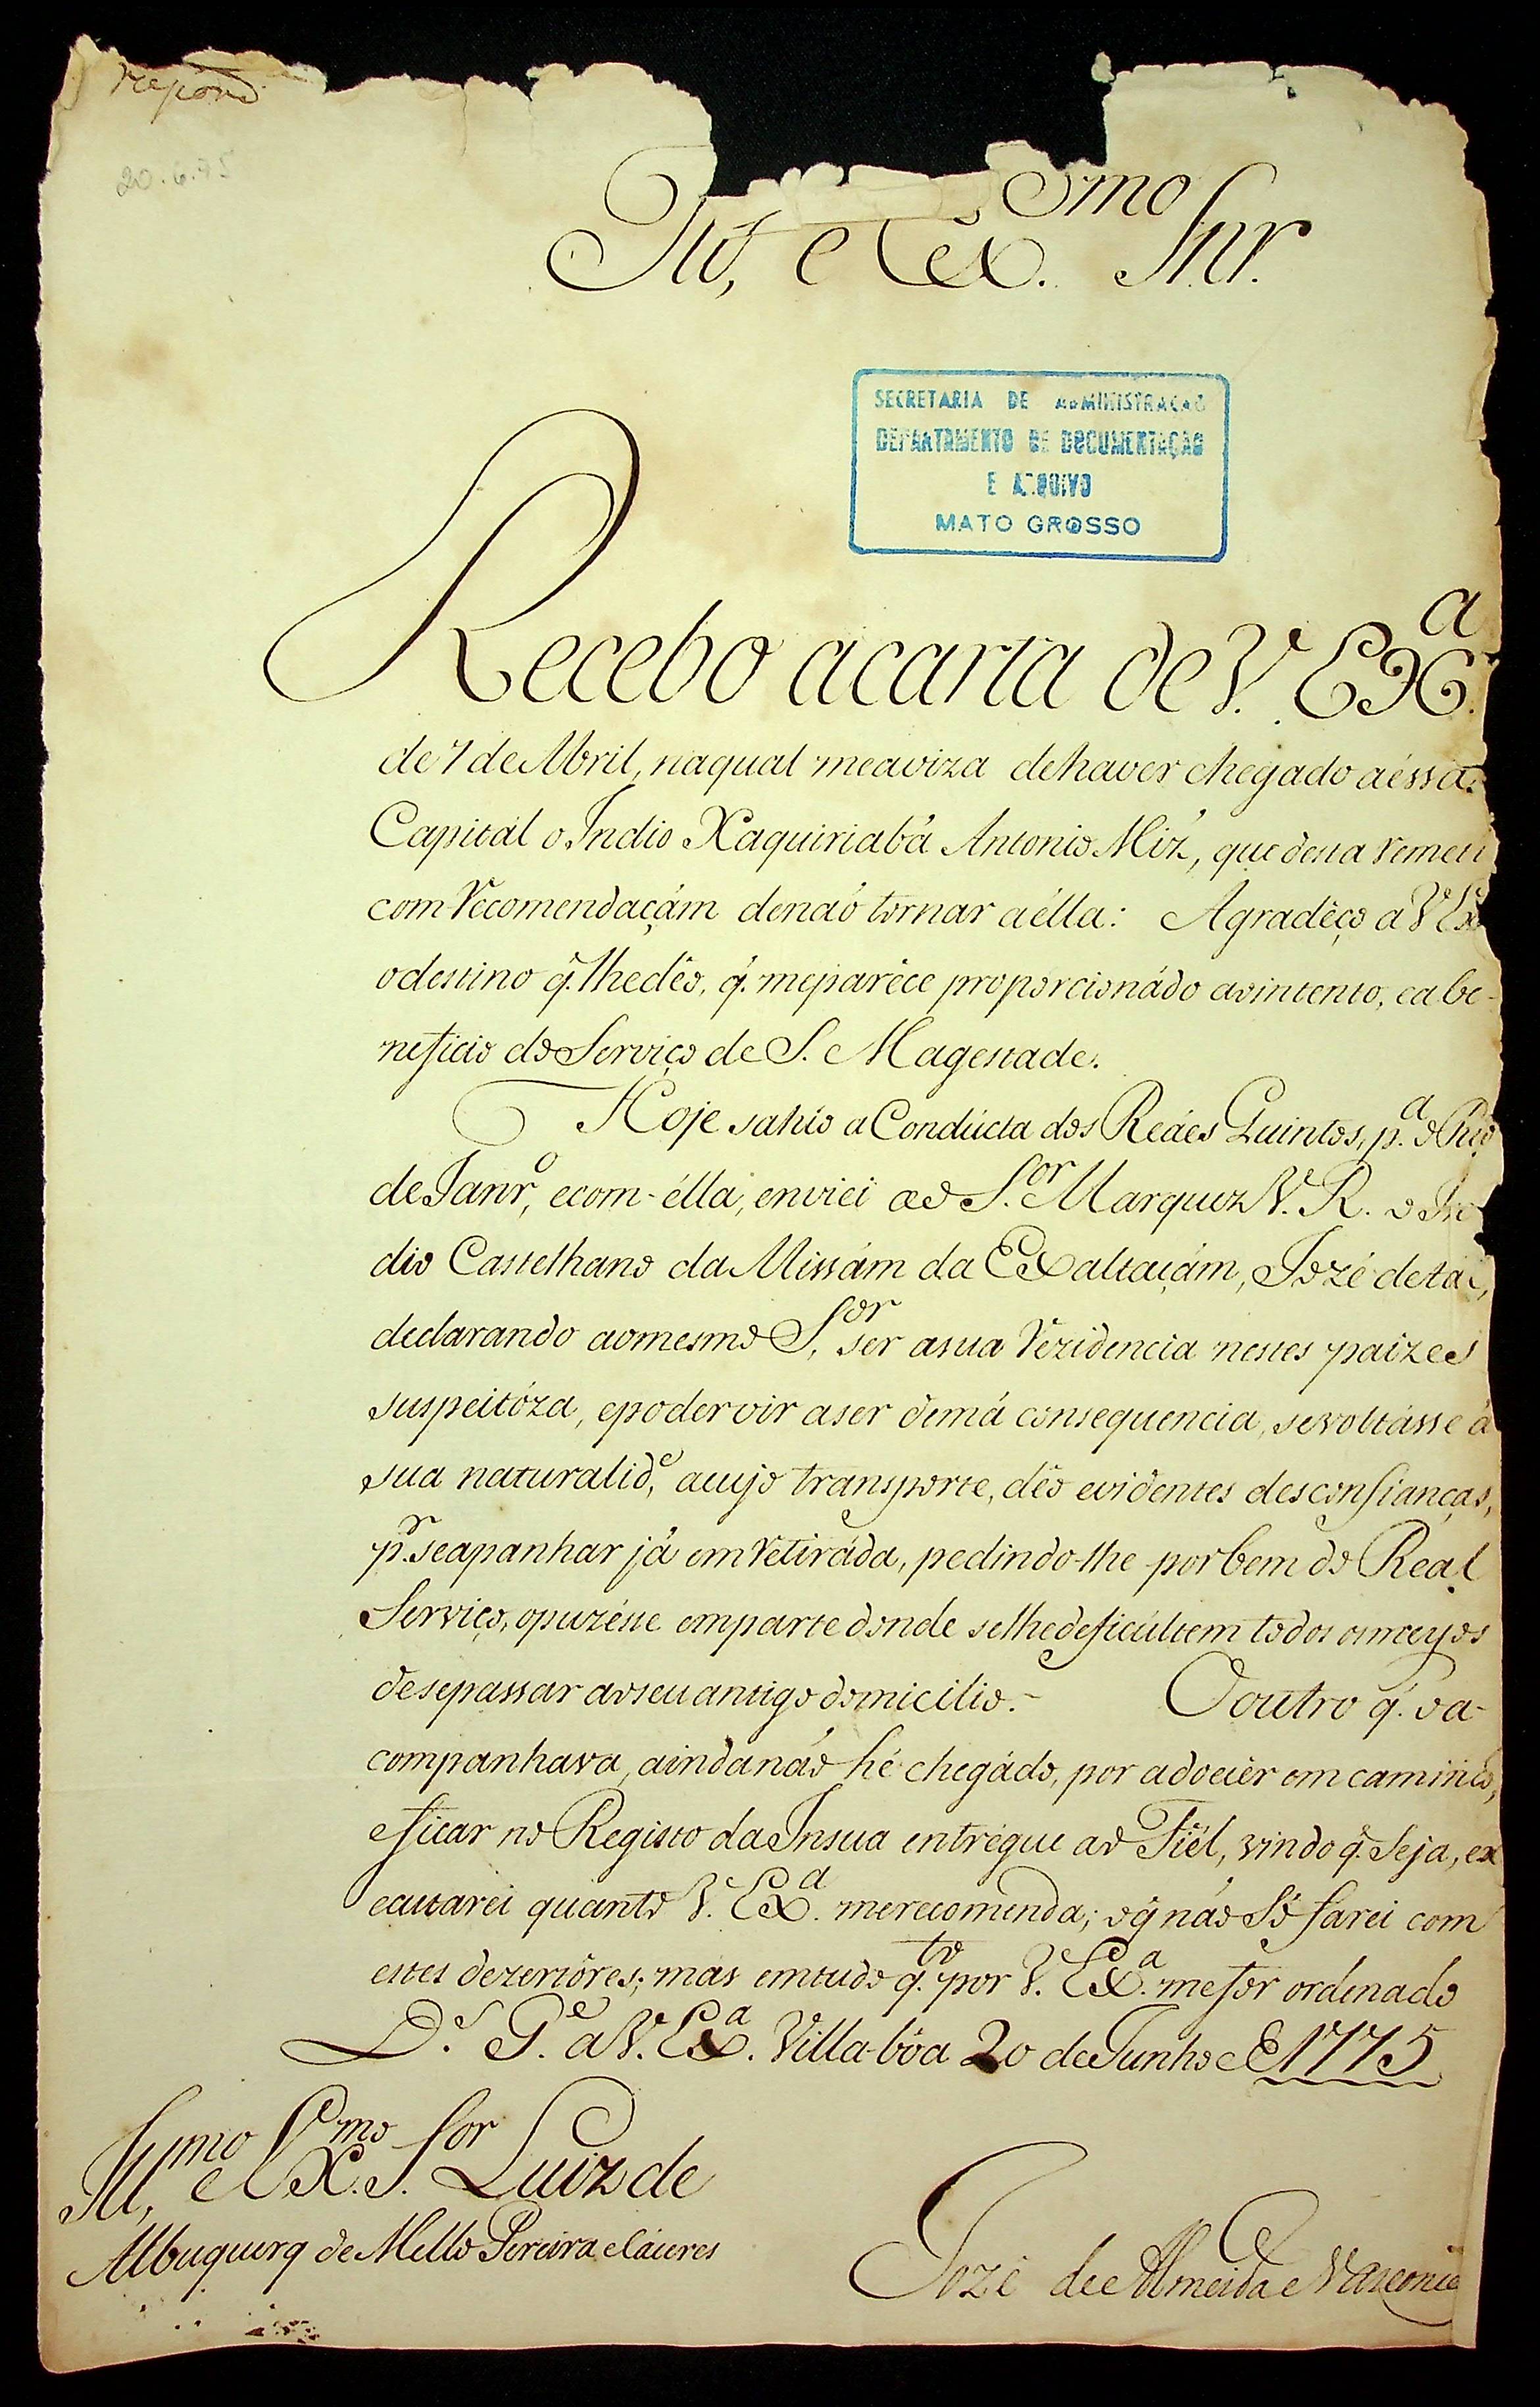 Respond.
20.6.75
Ill., e Ex.mo Snr.
SECRETARIA DE ADMINISTRAÇÃO
DEPARTAMENTO DE DOCUMENTAÇÃO
E ARQUIVO
MATO GROSSO
Recebo acarta deV. EX.a
de7deAbril, naqual meaviza dehaver chegado aéssa
Capitál oIndio Xaquiriabá Antonio Miz, que desta remeti
com recomendaçám denaó tornar aélla: Agradêço a V Ex
odestino q̃. lhedêo, q̃. meparéce proporcionádo aointento, eabe-
neficio doServiço de S. Magestade.
Hoje sahio aCondúcta dos Reáes Quintos, p.a o Rio
deJanr.o, ecom-élla, enviei ao S.or Marquez V. R. o In
dio Castelhano da Missám da Exaltaçám, Jozé deta
declarando aomesmo S.or ser asua rezidencia nestes paizes
suspeitóza, epodervir aser demá consequencia, sevoltásse á
sua naturalid.e, acujo transporte, dêo evidentes desconfianças,
p.r seapanhar já emretiráda, pedindo-lhe porbem do Real
Serviço, opuzésse emparte donde selhedeficúltem todos osmeyos
desepassar aoseuantigo domicilio.- Ooutro q̃. oa-
companhava, aindanáo hé chegádo, por adoecêr em caminho,
eficar no Registo daInsua entrégue ao Fiél, vindo q̃. seja, ex
ecutarei quanto V. Ex.a merecomenda; oq̃ náo Só farei com
estes dezertôres; mas emtudo q.to por V. Ex.a mefor ordenado
D.s G.e aV. Ex.a. Villa-bôa 20 deJunho de 1775
Ill.mo e Ex.mo S.or Luiz de
Albuquerq̃ deMello Pereira eCáceres
Jozé de Almeida e Vasconce